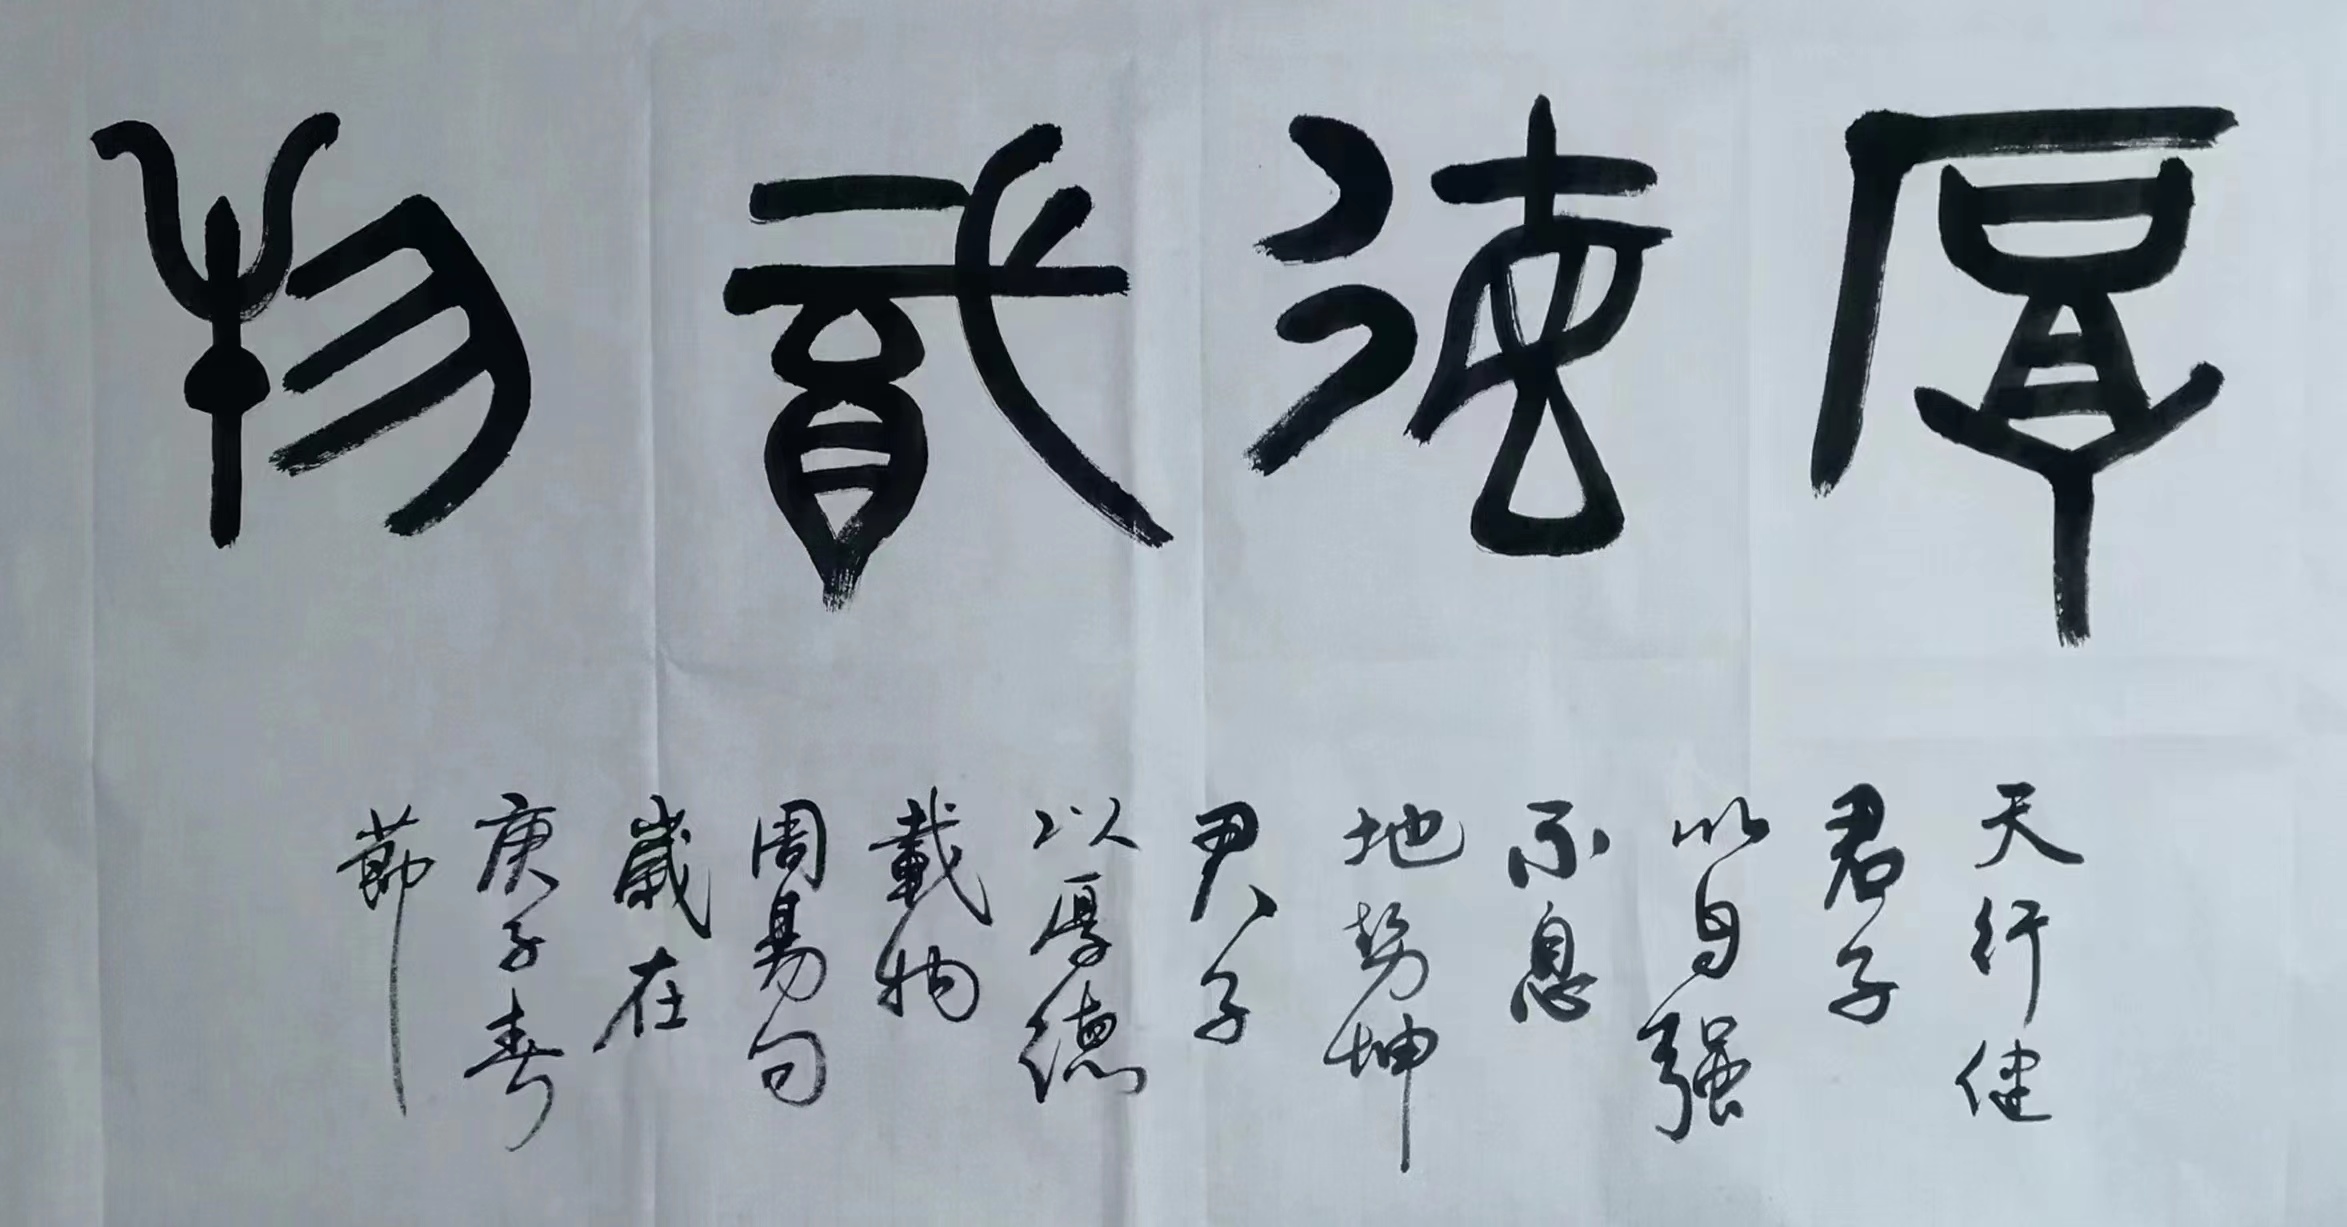 厚德載物
天行健
君子
以自强
不息
地势坤
君子
以厚德
載物
周易句
歲在
庚子春
節